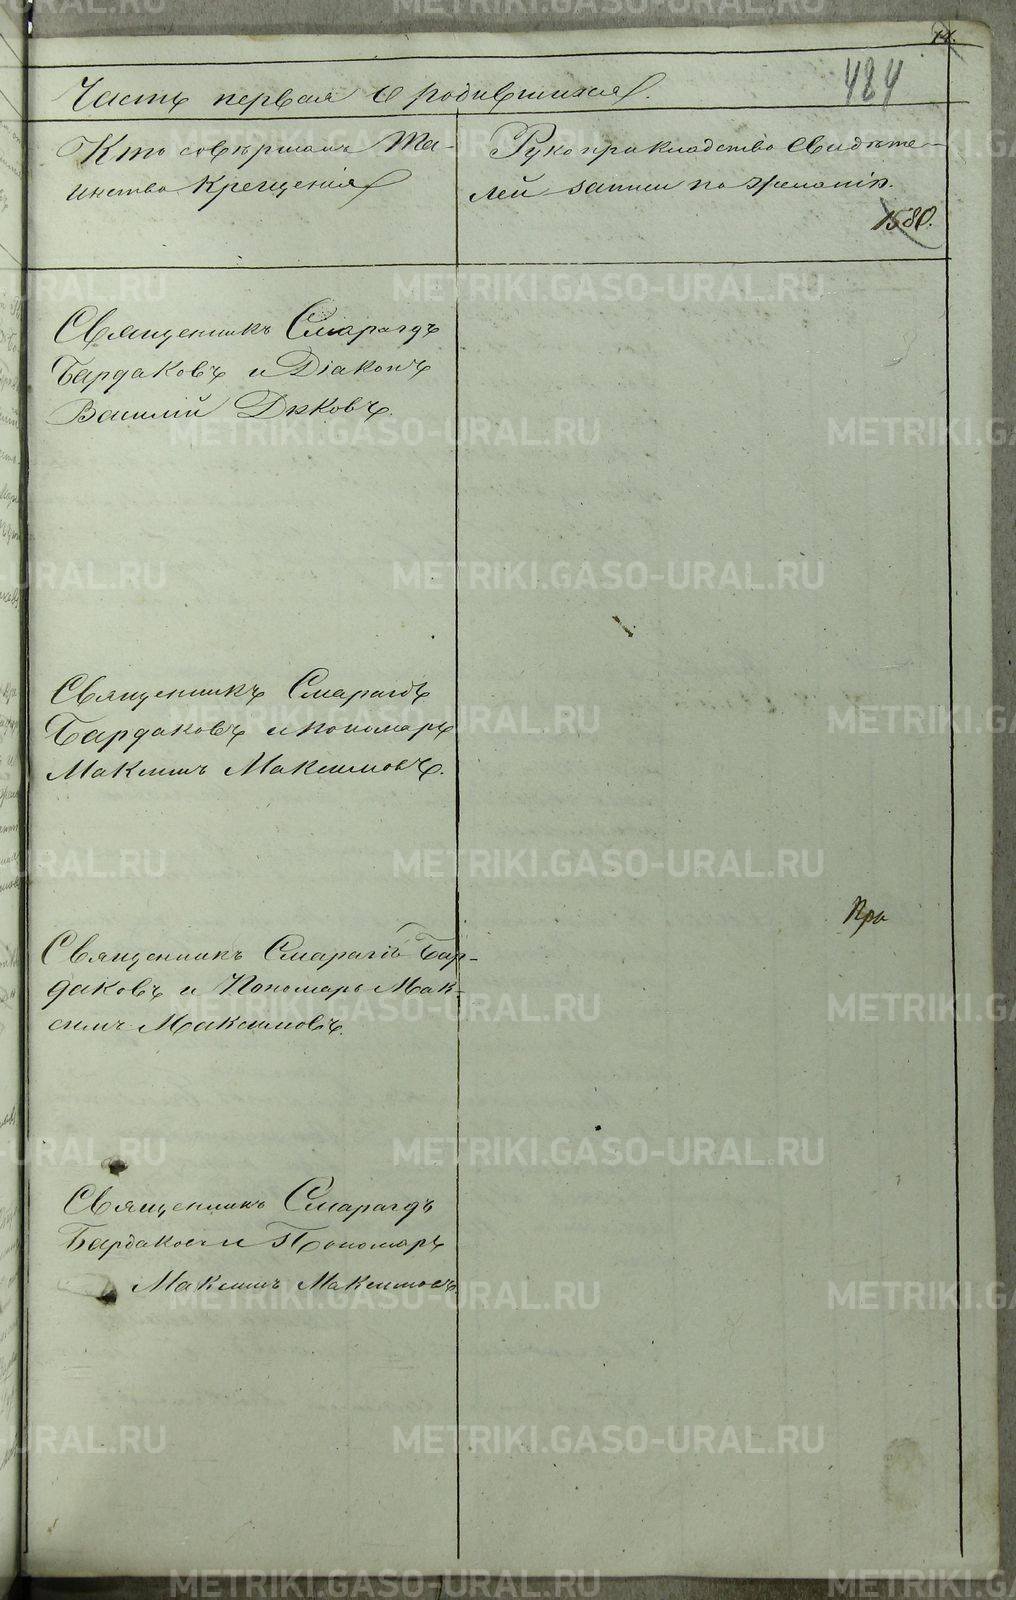 14.
484
Часть первая о родившихся.
Кто совершалъ Та-
инство Крещенія
Рукоприкладство Свидѣте-
лей записи по желанію.
1580.
Священникъ Смарагдъ
Бардаковъ и Діаконъ
Василій Дьковъ.
Священникъ Смарагдъ
Бардаковъ и пономарь
Максимъ Максимовъ.
Священникъ Смарагдъ Бар-
даковъ и Пономарь Мак-
симъ Максимовъ.
Священникъ Смарагдъ
Бардаковъ и Пономарь
Максимъ Максимовъ
METRIKI.GASO-URAL.RU